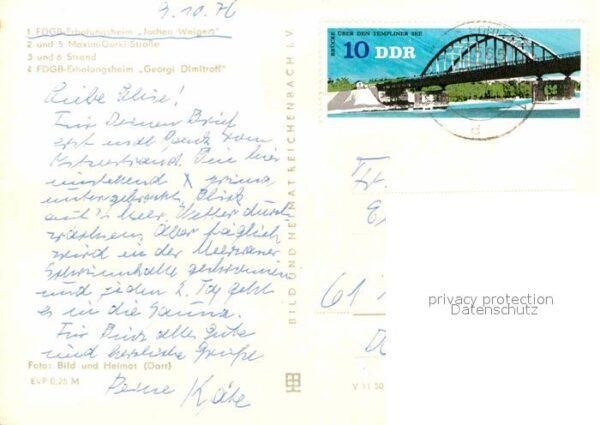 9.10.76
1 FDGB-Erholungsheim „Jochen Weigert"
2 und 5 Maxim-Gorki-Straße
3 und 6 Strand
4 FDGB-Erholungsheim „Georgi Dimitroff"
Liebe Elise!
Für Deinen Brief
erst mal Dank vom
Ostseestrand. Bin hier
umstehend X prima
untergebracht, Blick
auf's Meer, Wetter durch
wachsen. Aber täglich
wird in der Meerwasser
Schwimmhalle geschwommen
und jeden 2. Tag geht
es in die Sauna.
Für Dich alles Gute
und herzliche Grüße
Deine Käte
Foto: Bild und Heimat (Darr)
EVP 0,25 M
BILD UND HEIMAT REICHENBACH I. V.
V 11 50
BRÜCKE ÜBER DEN TEMPLINER SEE
10 DDR
61
privacy protection
Datenschutz